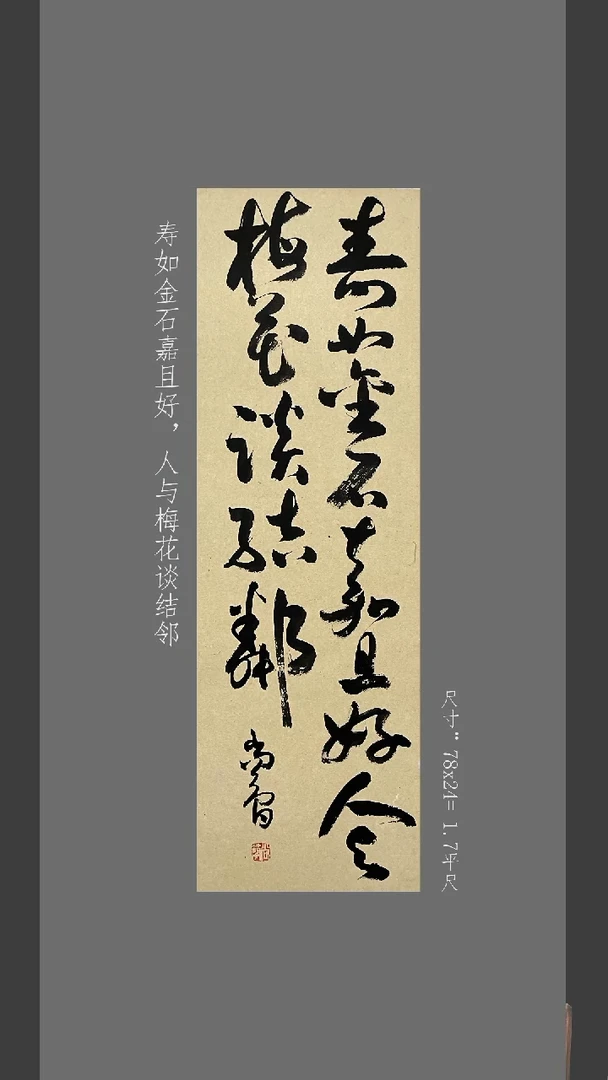 寿如金石嘉且好,人与梅花谈结邻
寿如金石嘉且好人与
梅花谈结邻
尺寸:78x24=1.7平尺